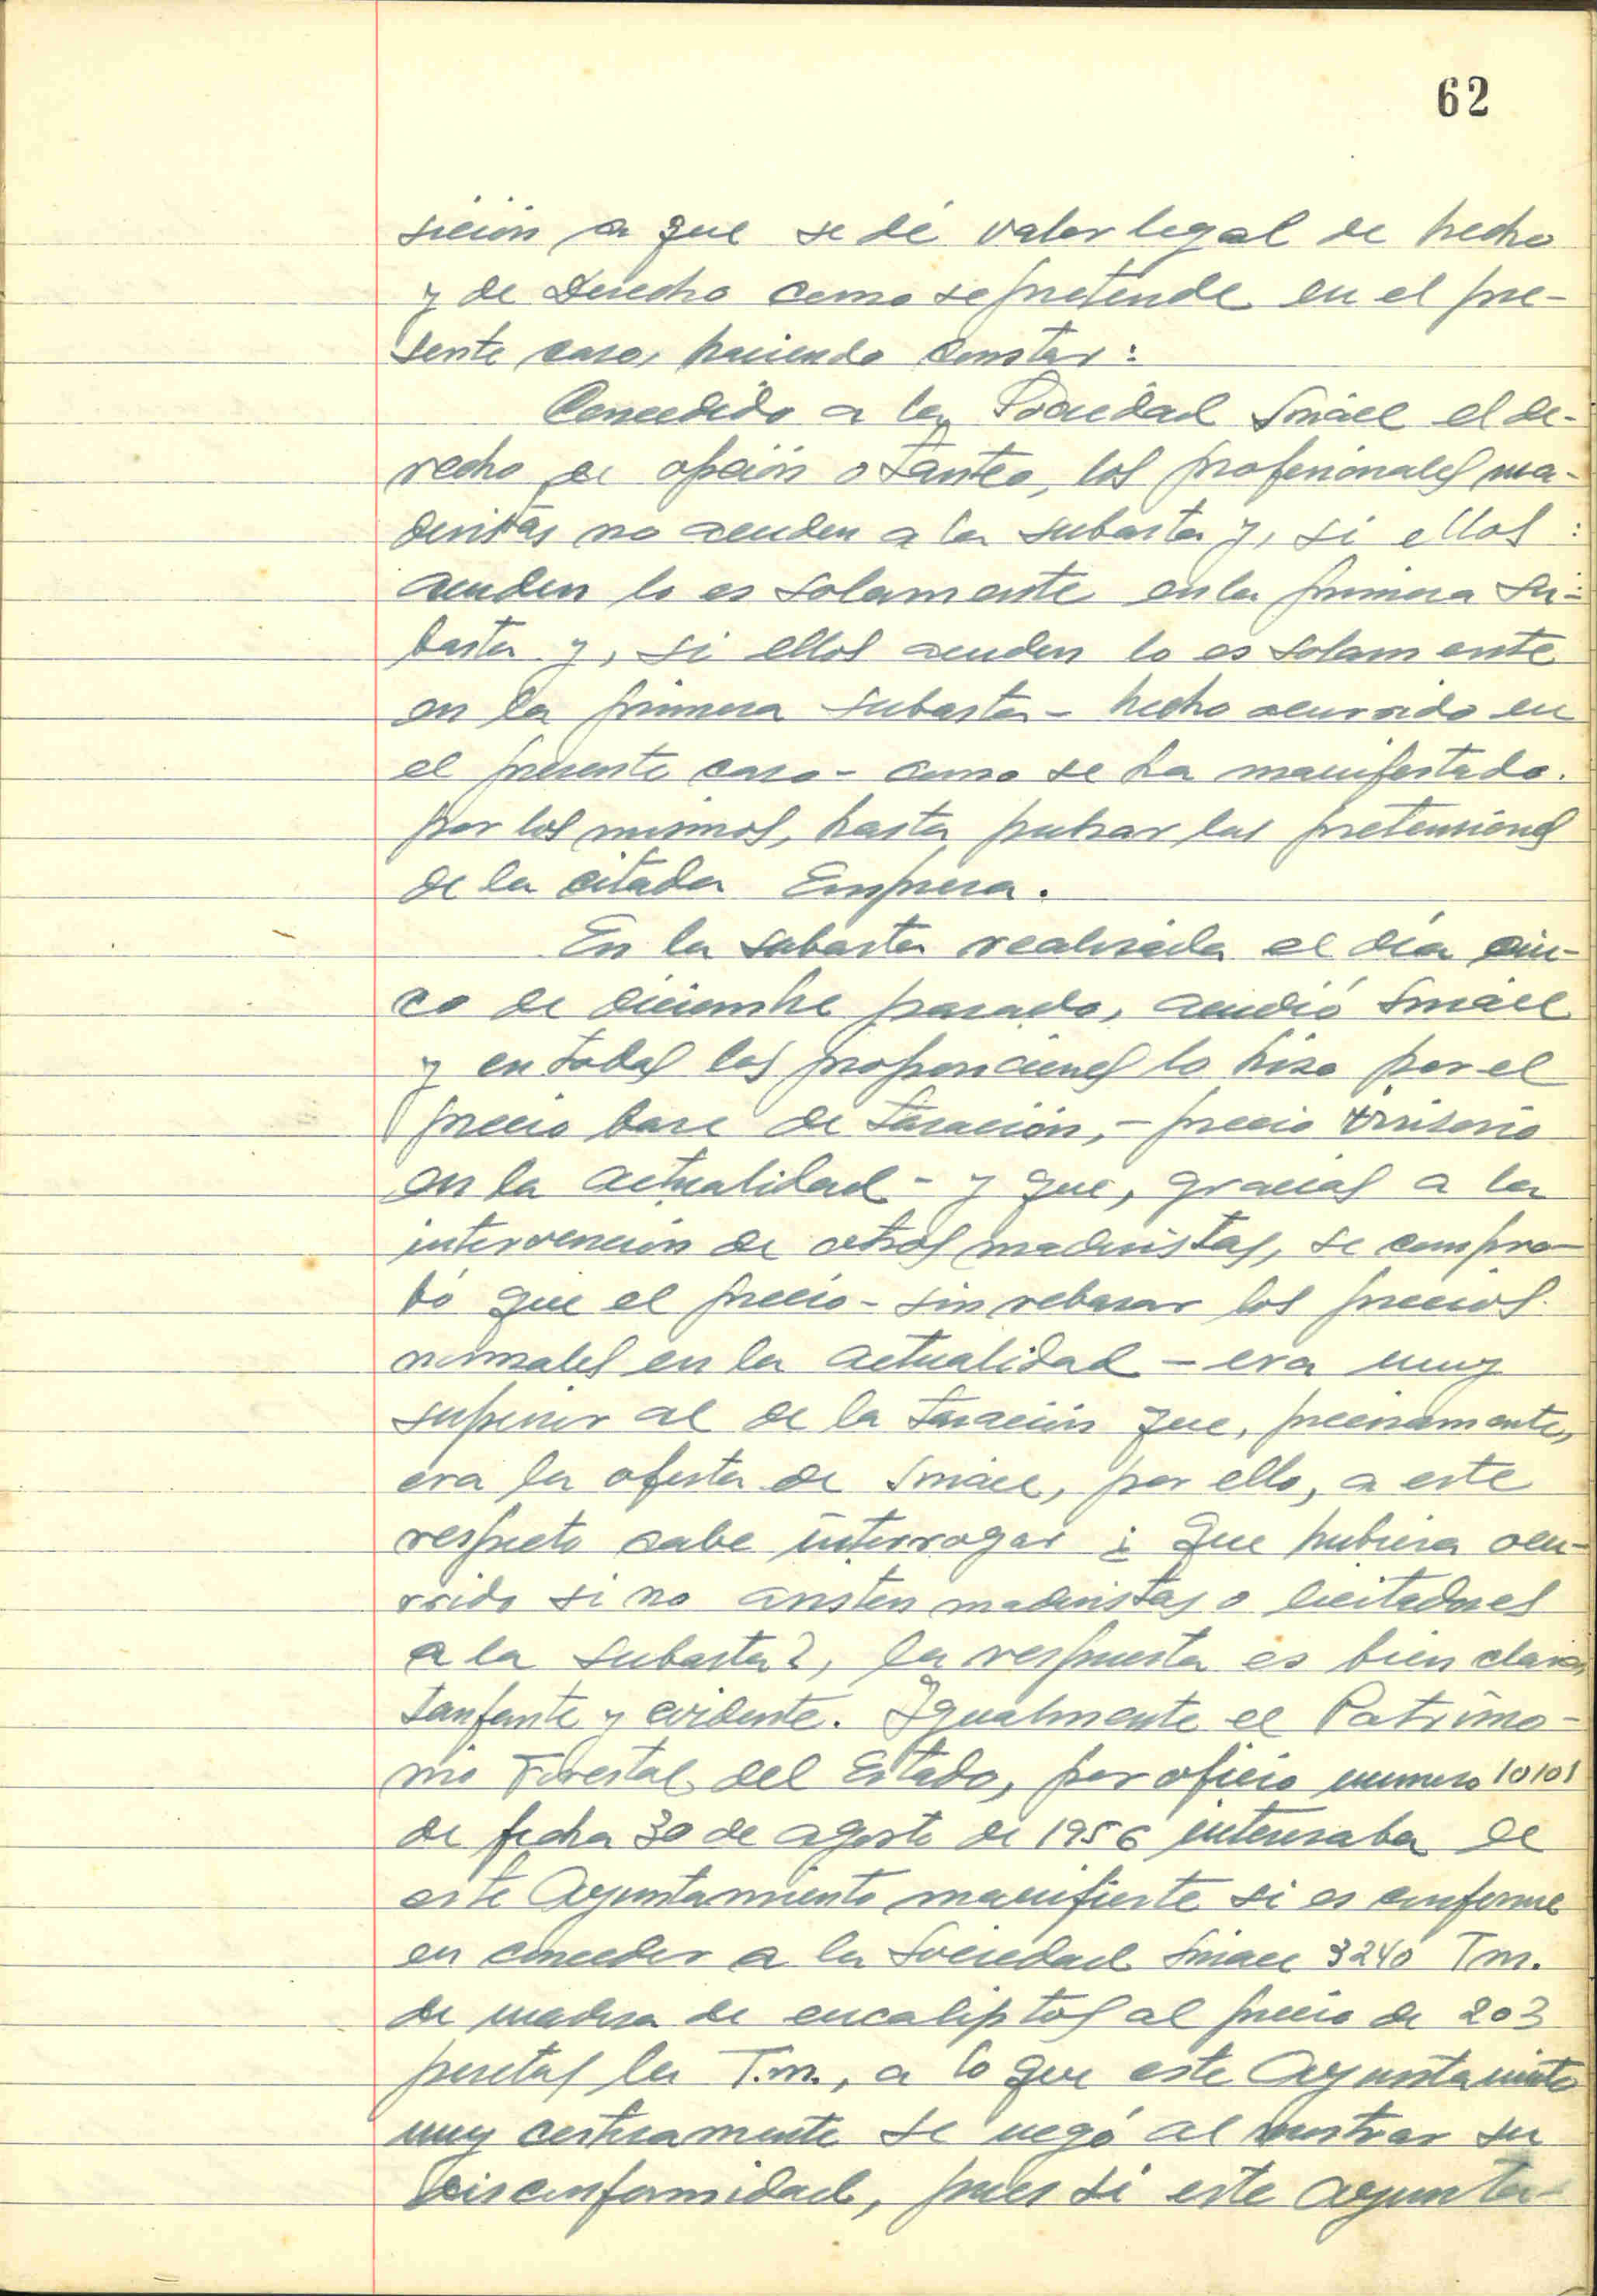 62
sición a que se dé valor legal de hecho
y de Derecho como se pretende en el pre-
sente caso, haciendo constar:
Concedido a la Sociedad Sniace el de-
recho de opción o tanteo, los profesionales ma-
deristas no acuden a la subasta y, si ellos :
acuden lo es solamente en la primera su-
basta y, si ellos acuden lo es solamente
en la primera subasta - hecho ocurrido en
el presente caso - como se ha manifestado.
por los mismos, hasta pulsar las pretensiones
de la citada Empresa.
En la subasta realizada el día cin-
co de diciembre pasado, acudió Sniace
y en todas las proposiciones lo hizo por el
precio base de tasación, - precio irrisorio
en la actualidad - y que, gracias a la
intervención de otros maderistas, se compro-
bó que el precio - sin rebasar los precios
normales en la actualidad - era muy
superior al de la tasación que, precisamente,
era la oferta de Sniace, por ello, a este
respecto cabe interrogar ¿ que hubiera ocu-
rrido si no asisten maderistas o licitadores
a la subasta?, la respuesta es bien clara,
tanfante y evidente. Igualmente el Patrimo-
nio Forestal del Estado, por oficio numero 10101
de fecha 30 de agosto de 1956 interesaba de
este Ayuntamiento manifieste si es conforme
en conceder a la Sociedad Sniace 3240 Tm.
de madera de eucaliptos al precio de 203
pesetas la T.m., a lo que este Ayuntamiento
muy certeramente se negó al mostrar su
disconformidad, pues si este Ayunta-